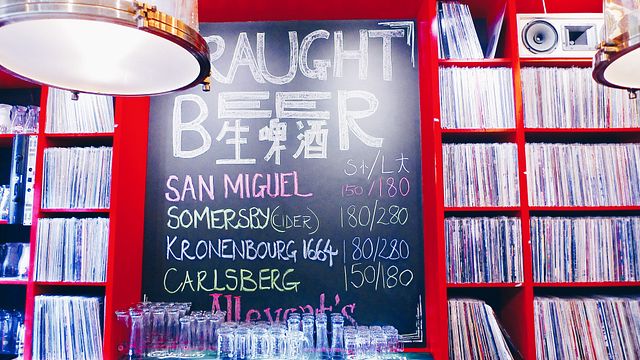 DRAUGHT
BEER
生啤酒
S小/L大
SAN MIGUEL 150/180
SOMERSBY (CIDER) 180/280
KRONENBOURG 1664 180/280
CARLSBERG 150/180